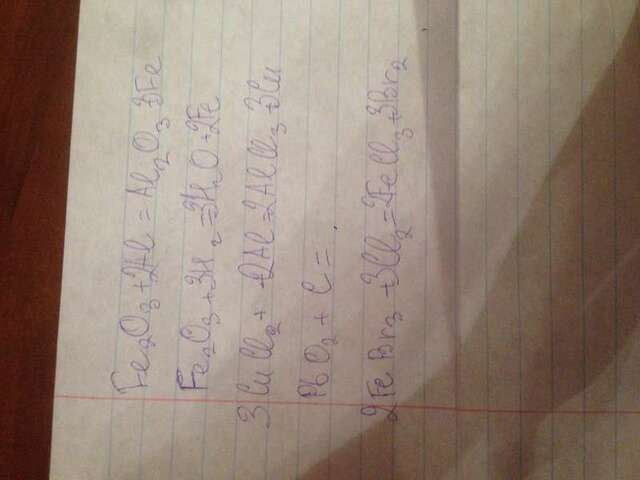 Fe₂O₃ + 2Al = Al₂O₃ 3Fe
Fe₂O₃ + 3H₂ = 3H₂O + 2Fe
3CuCl₂ + + 2Al = 2AlCl₃ 3Cu
PbO₂ + C = .
2FeBr₃ + 3Cl₂ = 2FeCl₃ + 3Br₂